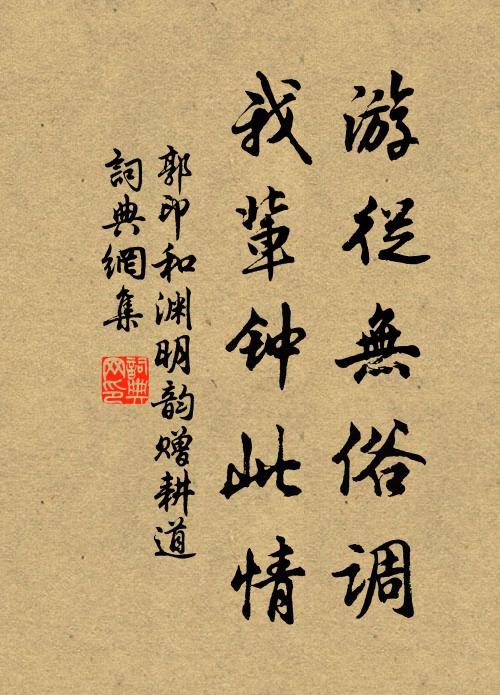 游從無俗调
我輩钟此情
郭印和渊明韵赠耕道
詞典網集
詞典网印